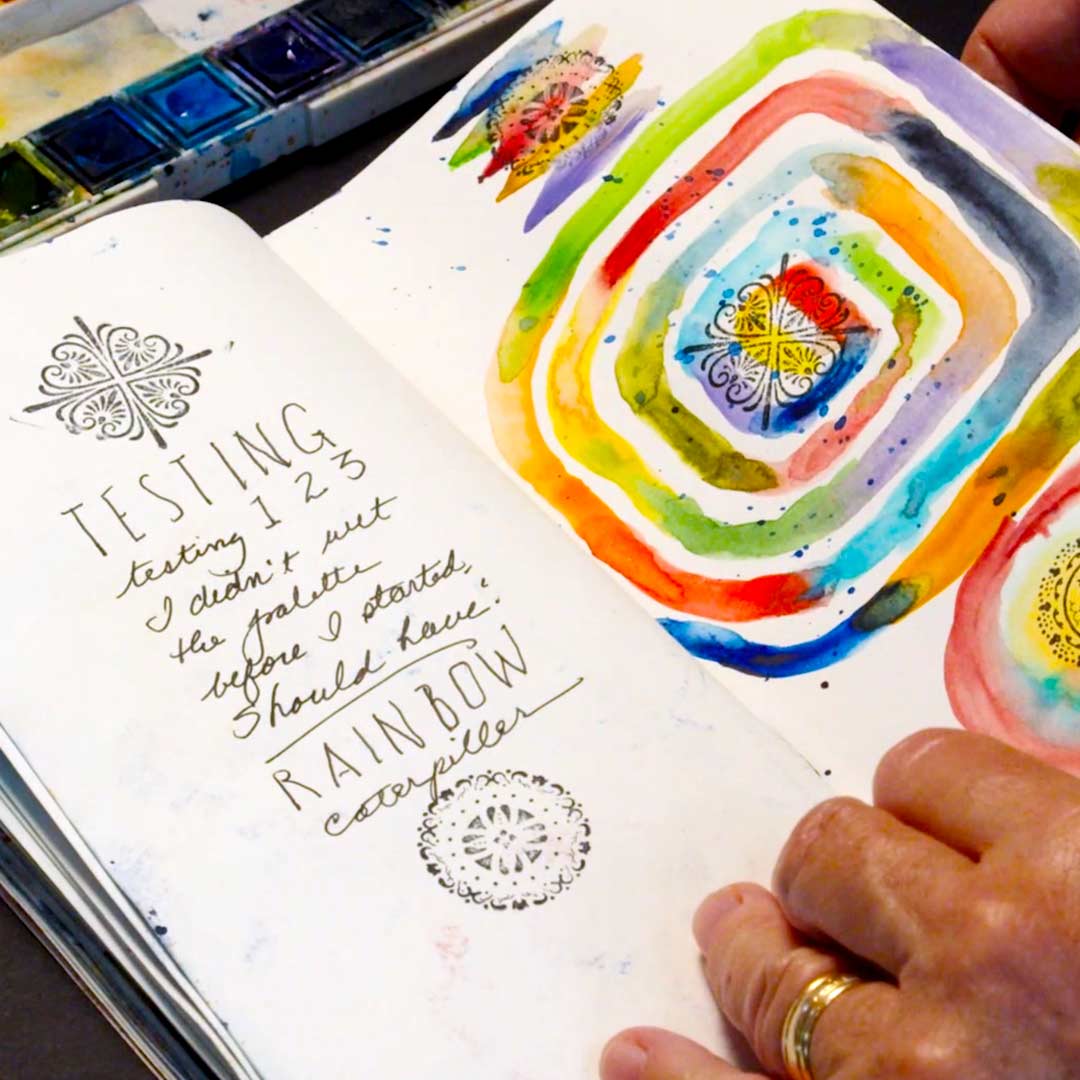 TESTING
testing 1 2 3
I didn't wet
the palette
before I started,
should have!
RAINBOW
caterpiller